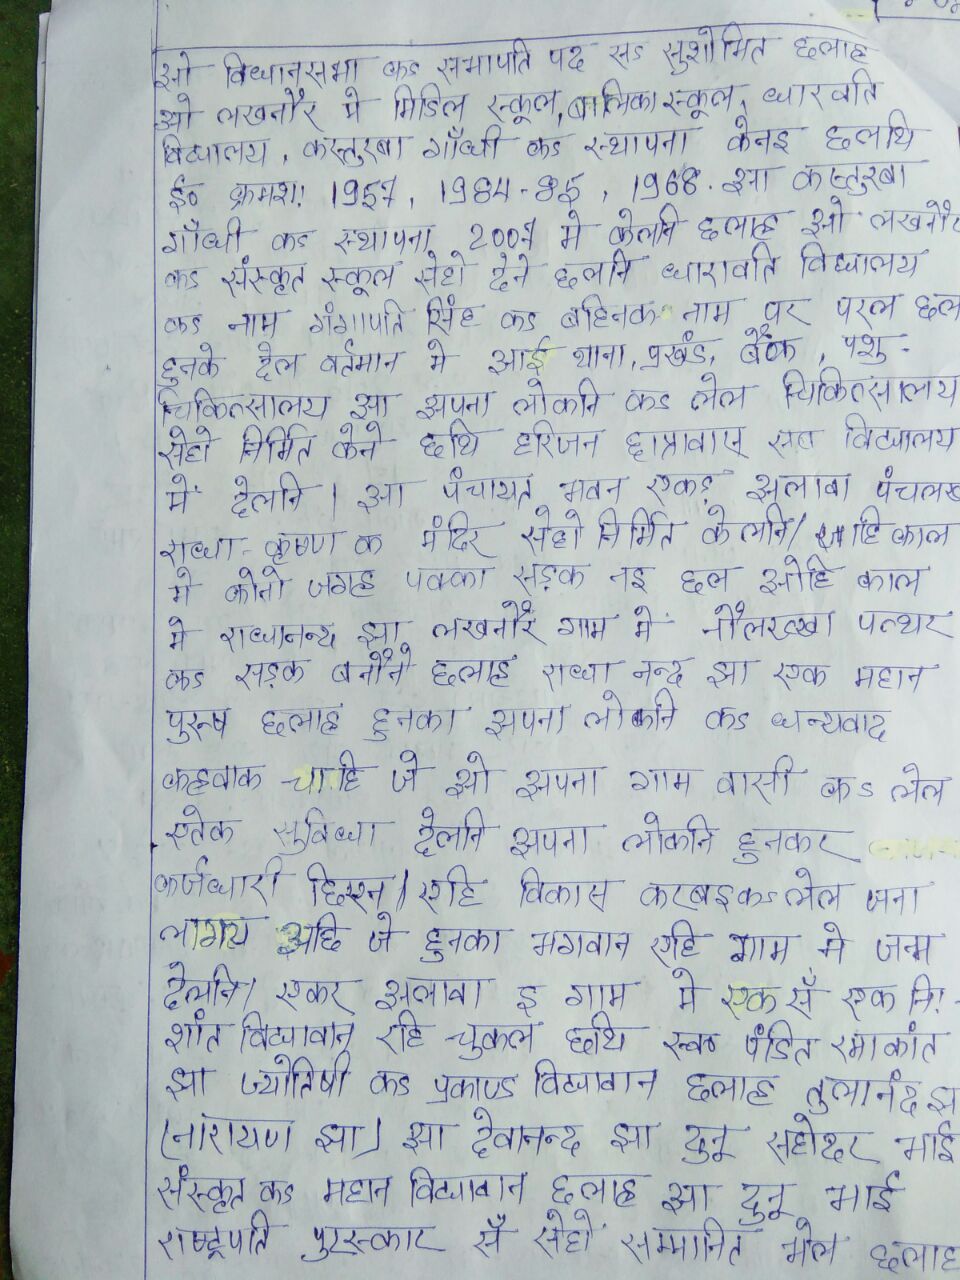 ओ विधानसभा कऽ सभापति पद सऽ सुशोभित छलाह
ओ लखनौर मे मिडिल स्कूल, बालिका स्कूल, धारवति
विद्यालय, कस्तुरबा गाँधी कऽ स्थापना केनइ छलथि
ई० क्रमश: 1957, 1984-85, 1968. आ कस्तुरबा
गाँधी कऽ स्थापना 2007 मे केलनि छलाह ओ लखनौर
कऽ संस्कृत स्कूल सेहो देने छलनि धारावति विद्यालय
कऽ नाम गंगापति सिंह कऽ बहिनक नाम पर परल छल
हुनके देल वर्तमान मे आई थाना, प्रखंड, बैंक, पशु-
चिकित्सालय आ अपना लोकनि कऽ लेल चिकित्सालय
सेहो निर्मित केने छथि हरिजन छात्रावास सब विद्यालय
में देलनि। आ पंचायत भवन एकऽ अलावा पंचलख
राधा-कृष्ण क मंदिर सेहो निर्मित केलनि। जाहि काल
मे कोनो जगह पक्का सड़क नइ छल ओहि काल
मे राधानन्द झा लखनौर गाम में नौलख्खा पत्थर
कऽ सड़क बनौने छलाह राधा नन्द झा एक महान
पुरुष छलाह हुनका अपना लोकनि कऽ धन्यवाद
कहबाक चाहि जे ओ अपना गाम वासी कऽ लेल
एतेक सुविधा देलनि अपना लोकनि हुनकर
कर्जधारी छिएन। एहि विकास करबइकऽ लेल जना
लागय अछि जे हुनका भगवान एहि गाम मे जन्म
देलनि। एकर अलावा इ गाम मे एक सँ एक नि:-
शांत विद्यावान रहि चुकल छथि स्व० पंडित रमाकांत
झा ज्योतिषी कऽ प्रकाण्ड विद्यावान छलाह तुलानंद झा
(नारायण झा) आ देवानन्द झा दुनू सहोदर भाई
संस्कृत कऽ महान विद्यावान छलाह आ दुनू भाई
राष्ट्रपति पुरस्कार सँ सेहो सम्मानित भेल छलाह